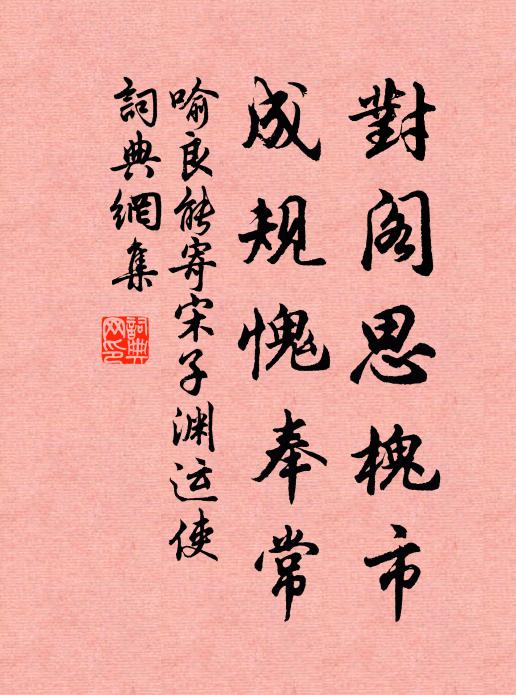 對阁思槐市
成规愧奉常
喻良能寄宋子渊运使
詞典網集
詞典網印